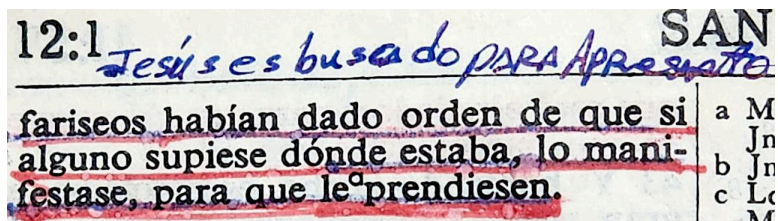 12:1 SAN
Jesús es buscado PARA
fariseos habían dado orden de que si
alguno supiese dónde estaba, lo mani-
festase, para que le°prendiesen.
a M
Jn
b Jn
c L